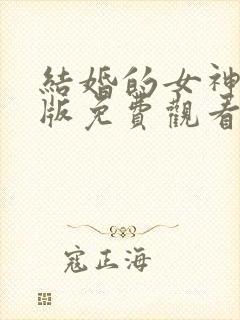 結婚的女神
版免費觀看
寇正海